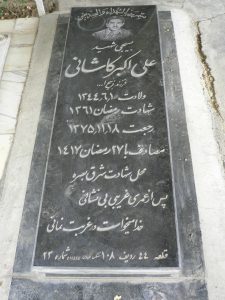 بسیجی شهید
علی اکبر کاشانی
فرزند ذبیح ا...
ولادت ۱۳۴۴،۶،۱
شهادت رمضان ۱۳۶۱
رجعت ۱۳۷۵،۱۱،۱۸
مصادف با ۲۷ رمضان ۱۴۱۷
محل شهادت شرق بصره
پس از عمری غریبی بی نشانی
خدا میخواست در غربت نمانی
قطعه ۴۴ ردیف ۱۰۸ شماره ۲۳